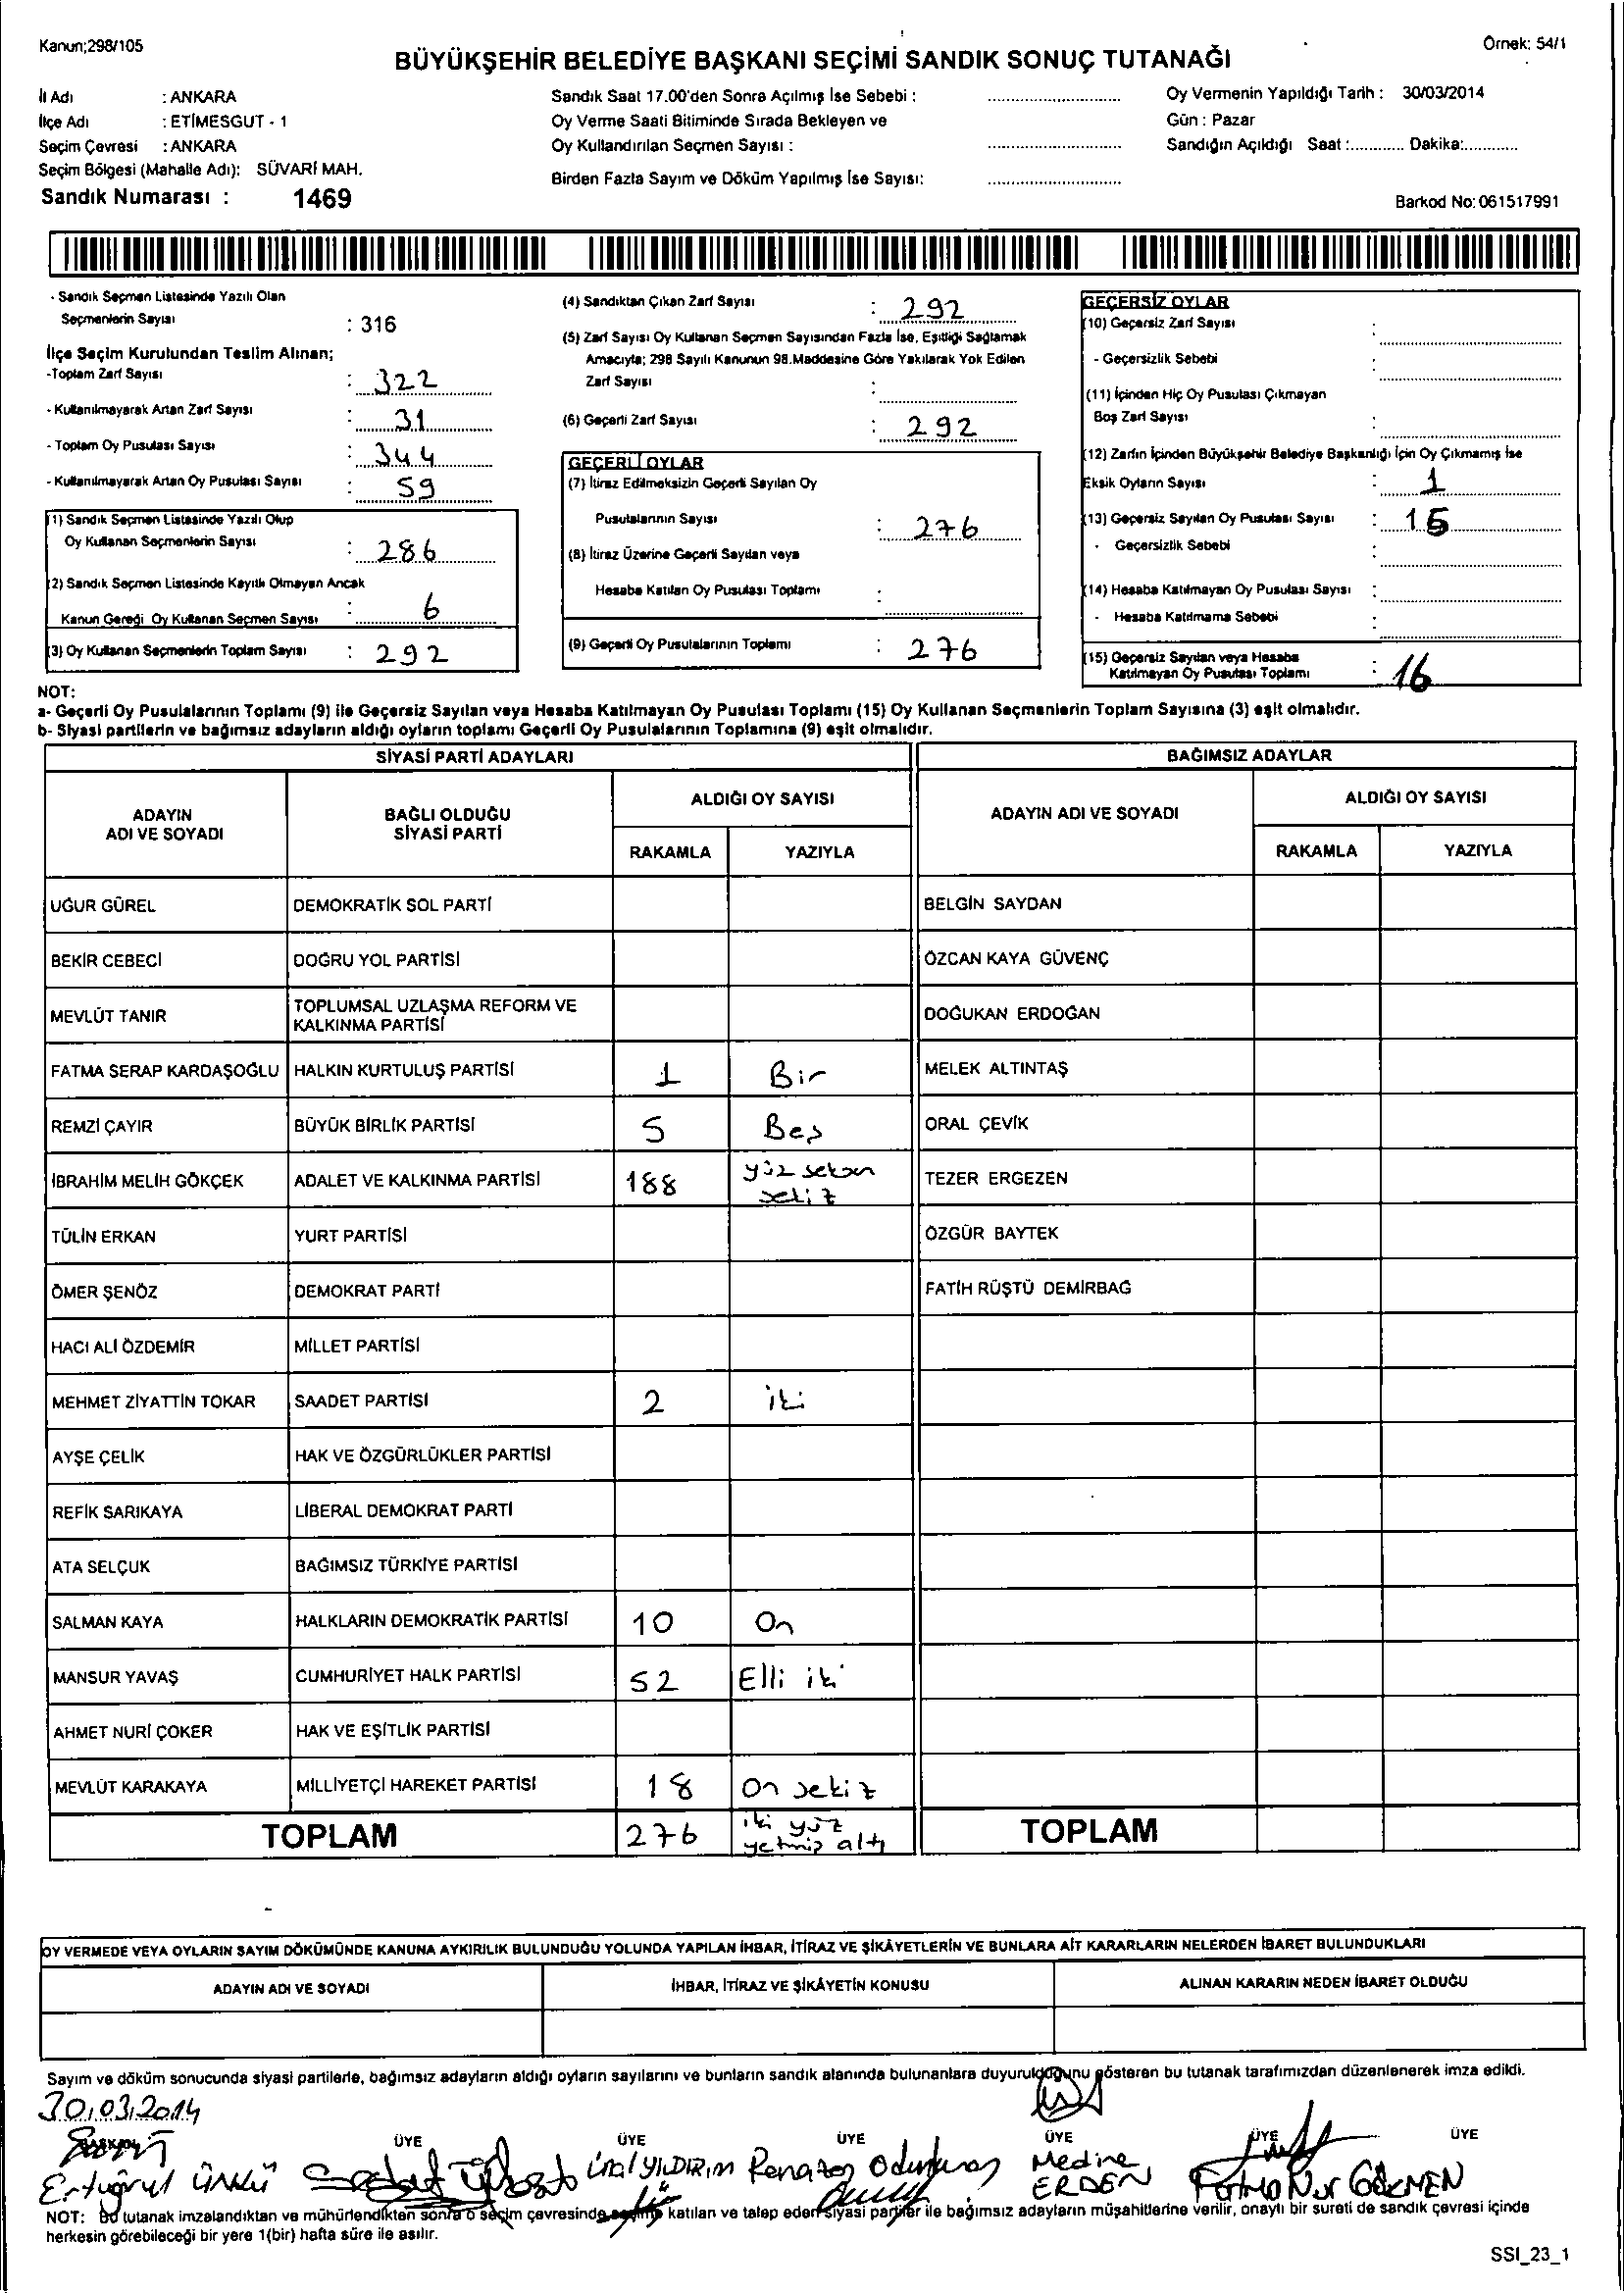 Kanun;298/105
Örnek: 54/1
BÜYÜKŞEHİR BELEDİYE BAŞKANI SEÇİMİ SANDIK SONUÇ TUTANAĞI
İl Adı : ANKARA
İlçe Adı : ETİMESGUT - 1
Seçim Çevresi : ANKARA
Seçim Bölgesi (Mahalle Adı): SÜVARİ MAH.
Sandık Numarası : 1469
Sandık Saat 17.00'den Sonra Açılmış İse Sebebi : ............................
Oy Verme Saati Bitiminde Sırada Bekleyen ve
Oy Kullandırılan Seçmen Sayısı : ............................
Birden Fazla Sayım ve Döküm Yapılmış İse Sayısı: ............................
Oy Vermenin Yapıldığı Tarih : 30/03/2014
Gün : Pazar
Sandığın Açıldığı Saat :............ Dakika:............
Barkod No: 061517991
- Sandık Seçmen Listesinde Yazılı Olan
Seçmenlerin Sayısı : 316
İlçe Seçim Kurulundan Teslim Alınan;
-Toplam Zarf Sayısı : 322
- Kullanılmayarak Artan Zarf Sayısı : 31
- Toplam Oy Pusulası Sayısı : 344
- Kullanılmayarak Artan Oy Pusulası Sayısı : 59
(1) Sandık Seçmen Listesinde Yazılı Olup
Oy Kullanan Seçmenlerin Sayısı : 286
(2) Sandık Seçmen Listesinde Kayıtlı Olmayan Ancak
Kanun Gereği Oy Kullanan Seçmen Sayısı : 6
(3) Oy Kullanan Seçmenlerin Toplam Sayısı : 292
(4) Sandıktan Çıkan Zarf Sayısı : 292
(5) Zarf Sayısı Oy Kullanan Seçmen Sayısından Fazla İse, Eşitliği Sağlamak
Amacıyla; 298 Sayılı Kanunun 98.Maddesine Göre Yakılarak Yok Edilen
Zarf Sayısı :
(6) Geçerli Zarf Sayısı : 292
GEÇERLİ OYLAR
(7) İtiraz Edilmeksizin Geçerli Sayılan Oy
Pusulalarının Sayısı : 276
(8) İtiraz Üzerine Geçerli Sayılan veya
Hesaba Katılan Oy Pusulası Toplamı :
(9) Geçerli Oy Pusulalarının Toplamı : 276
GEÇERSİZ OYLAR
(10) Geçersiz Zarf Sayısı :
- Geçersizlik Sebebi :
(11) İçinden Hiç Oy Pusulası Çıkmayan
Boş Zarf Sayısı :
(12) Zarfın İçinden Büyükşehir Belediye Başkanlığı İçin Oy Çıkmamış İse
Eksik Oyların Sayısı : 1
(13) Geçersiz Sayılan Oy Pusulası Sayısı : 15
- Geçersizlik Sebebi :
(14) Hesaba Katılmayan Oy Pusulası Sayısı :
- Hesaba Katılmama Sebebi :
(15) Geçersiz Sayılan veya Hesaba
Katılmayan Oy Pusulası Toplamı : 16
NOT:
a- Geçerli Oy Pusulalarının Toplamı (9) ile Geçersiz Sayılan veya Hesaba Katılmayan Oy Pusulası Toplamı (15) Oy Kullanan Seçmenlerin Toplam Sayısına (3) eşit olmalıdır.
b- Siyasi partilerin ve bağımsız adayların aldığı oyların toplamı Geçerli Oy Pusulalarının Toplamına (9) eşit olmalıdır.
SİYASİ PARTİ ADAYLARI BAĞIMSIZ ADAYLAR
ADAYIN ADI VE SOYADI BAĞLI OLDUĞU SİYASİ PARTİ ALDIĞI OY SAYISI ADAYIN ADI VE SOYADI ALDIĞI OY SAYISI
RAKAMLA YAZIYLA RAKAMLA YAZIYLA
UĞUR GÜREL DEMOKRATİK SOL PARTİ BELGİN SAYDAN
BEKİR CEBECİ DOĞRU YOL PARTİSİ ÖZCAN KAYA GÜVENÇ
MEVLÜT TANIR TOPLUMSAL UZLAŞMA REFORM VE KALKINMA PARTİSİ DOĞUKAN ERDOĞAN
FATMA SERAP KARDAŞOĞLU HALKIN KURTULUŞ PARTİSİ 1 Bir MELEK ALTINTAŞ
REMZİ ÇAYIR BÜYÜK BİRLİK PARTİSİ 5 Beş ORAL ÇEVİK
İBRAHİM MELİH GÖKÇEK ADALET VE KALKINMA PARTİSİ 188 yüz seksen sekiz TEZER ERGEZEN
TÜLİN ERKAN YURT PARTİSİ ÖZGÜR BAYTEK
ÖMER ŞENÖZ DEMOKRAT PARTİ FATİH RÜŞTÜ DEMİRBAĞ
HACI ALİ ÖZDEMİR MİLLET PARTİSİ
MEHMET ZİYATTİN TOKAR SAADET PARTİSİ 2 iki
AYŞE ÇELİK HAK VE ÖZGÜRLÜKLER PARTİSİ
REFİK SARIKAYA LİBERAL DEMOKRAT PARTİ
ATA SELÇUK BAĞIMSIZ TÜRKİYE PARTİSİ
SALMAN KAYA HALKLARIN DEMOKRATİK PARTİSİ 10 On
MANSUR YAVAŞ CUMHURİYET HALK PARTİSİ 52 Elli iki
AHMET NURİ ÇOKER HAK VE EŞİTLİK PARTİSİ
MEVLÜT KARAKAYA MİLLİYETÇİ HAREKET PARTİSİ 18 On sekiz
TOPLAM 276 iki yüz yetmiş altı TOPLAM
OY VERMEDE VEYA OYLARIN SAYIM DÖKÜMÜNDE KANUNA AYKIRILIK BULUNDUĞU YOLUNDA YAPILAN İHBAR, İTİRAZ VE ŞİKÂYETLERİN VE BUNLARA AİT KARARLARIN NELERDEN İBARET BULUNDUKLARI
ADAYIN ADI VE SOYADI İHBAR, İTİRAZ VE ŞİKÂYETİN KONUSU ALINAN KARARIN NEDEN İBARET OLDUĞU
Sayım ve döküm sonucunda siyasi partilerle, bağımsız adayların aldığı oyların sayılarını ve bunların sandık alanında bulunanlara duyurulduğunu gösteren bu tutanak tarafımızdan düzenlenerek imza edildi.
30.03.2014
BAŞKAN ÜYE ÜYE ÜYE ÜYE ÜYE ÜYE
Ertuğrul ÜNLÜ Sedat Ünal YILDIRIM Ramazan Medine ERDEN Fatma Nur GÖKMEN
NOT: Bu tutanak imzalandıktan ve mühürlendikten sonra o seçim çevresinde seçime katılan ve talep eden siyasi partiler ile bağımsız adayların müşahitlerine verilir, onaylı bir sureti de sandık çevresi içinde
herkesin görebileceği bir yere 1(bir) hafta süre ile asılır.
SSI_23_1